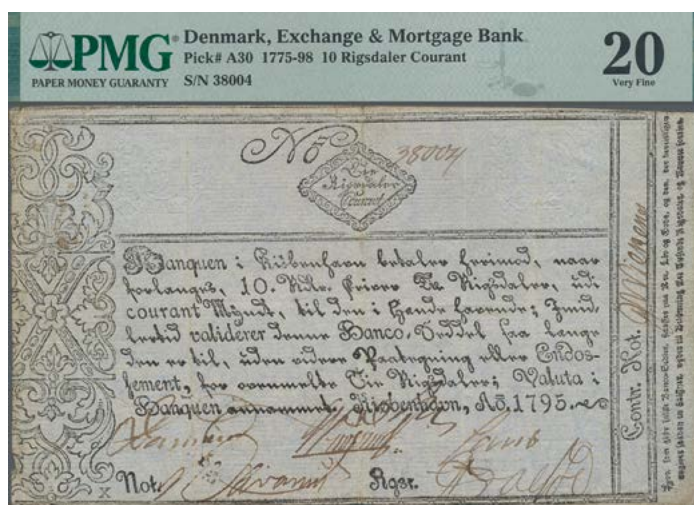 PMG
PAPER MONEY GUARANTY
Denmark, Exchange & Mortgage Bank
Pick# A30 1775-98 10 Rigsdaler Courant
S/N 38004
20
Very Fine
No 38004
Tie
Rigsdaler
Courant
Banquen i Kiøbenhavn betaler herimod, naar
forlanges, 10. Rdlr. skriver Tie Rigsdaler, udi
courant Mynt, til den i Hænde havende; Imid
lertid validerer denne Banco-Seddel saa længe
den er til, uden videre Paategning eller Endos-
sement, for ovenmeldte Tie Rigsdaler; Valuta i
Banquen annammet. Kiøbenhavn, Ao. 1795.
Not. Rgst.
X
Contr. Not.